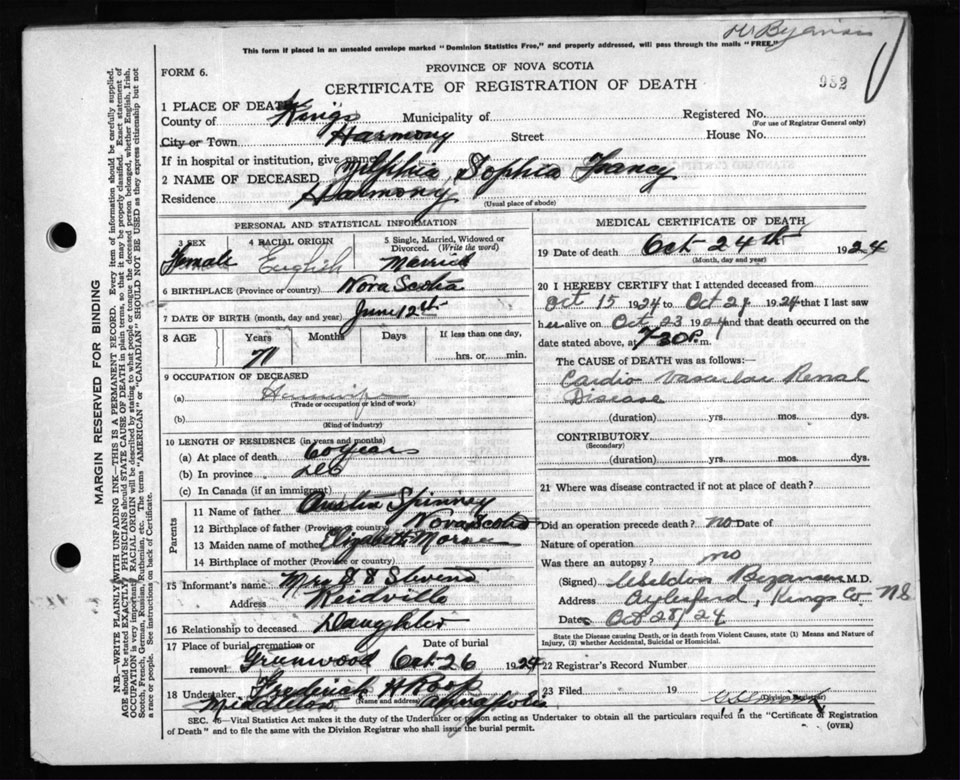 W Byanson
This form if placed in an unsealed envelope marked "Dominion Statistics Free," and properly addressed, will pass through the mails "FREE."
PROVINCE OF NOVA SCOTIA
FORM 6.
CERTIFICATE OF REGISTRATION OF DEATH
982
1 PLACE OF DEATH
County of Kings Municipality of Registered No.
(For use of Registrar General only)
City or Town Harmony Street House No.
If in hospital or institution, give name
2 NAME OF DECEASED Zilphia, Sophia Francy
Residence Harmony
(Usual place of abode)
PERSONAL AND STATISTICAL INFORMATION
3 SEX 4 RACIAL ORIGIN 5 Single, Married, Widowed or Divorced. (Write the word)
Female English Married
6 BIRTHPLACE (Province or country) Nova Scotia
7 DATE OF BIRTH (month, day and year) June 12th
8 AGE Years Months Days If less than one day,
71 hrs. or min.
9 OCCUPATION OF DECEASED
(a) Housewife
(Trade or occupation or kind of work)
(b)
(Kind of industry)
10 LENGTH OF RESIDENCE (in years and months)
(a) At place of death 60 years
(b) In province
(c) In Canada (if an immigrant)
Parents
11 Name of father Austin Spinney
12 Birthplace of father (Province or country) Nova Scotia
13 Maiden name of mother Elizabeth Morse
14 Birthplace of mother (Province or country)
15 Informant's name Mrs S S Stevens
Address Reidville
16 Relationship to deceased Daughter
17 Place of burial, cremation or removal Date of burial
Greenwood Oct 26 1924
18 Undertaker Frederick H Roop
(Name and address)
Middleton Annapolis
MEDICAL CERTIFICATE OF DEATH
19 Date of death Oct 24th 1924
(Month, day and year)
20 I HEREBY CERTIFY that I attended deceased from
Oct 15 1924 to Oct 24 1924 that I last saw
her alive on Oct 23 1924 and that death occurred on the
date stated above, at 7-30 P.m.
The CAUSE of DEATH was as follows:—
Cardio Vascular Renal
Disease
(duration) yrs. mos. dys.
CONTRIBUTORY
(Secondary)
(duration) yrs. mos. dys.
21 Where was disease contracted if not at place of death?
Did an operation precede death? no Date of
Nature of operation
Was there an autopsy? no
(Signed) Weldon Byanson M.D.
Address Aylesford, Kings Co NS
Date Oct 28/24
State the Disease causing Death, or in death from Violent Causes, state (1) Means and Nature of Injury, and (2) whether Accidental, Suicidal or Homicidal.
22 Registrar's Record Number
23 Filed 19
(Division Registrar)
SEC. 16—Vital Statistics Act makes it the duty of the Undertaker or person acting as Undertaker to obtain all the particulars required in the "Certificate of Registration
of Death" and to file the same with the Division Registrar who shall issue the burial permit.
(OVER)
MARGIN RESERVED FOR BINDING
N.B.—WRITE PLAINLY WITH UNFADING INK—THIS IS A PERMANENT RECORD. Every item of information should be carefully supplied.
AGE should be stated EXACTLY. PHYSICIANS should STATE CAUSE OF DEATH in plain terms, so that it may be properly classified. Exact statement of
OCCUPATION is very important. RACIAL ORIGIN will be described by stating to what people or tongue the deceased person belonged, whether English, Irish,
Scotch, French, German, Russian, Ruthenian, etc. The terms "AMERICAN" or "CANADIAN" SHOULD NOT BE USED as they express citizenship but not
a race or people. See instructions on back of Certificate.